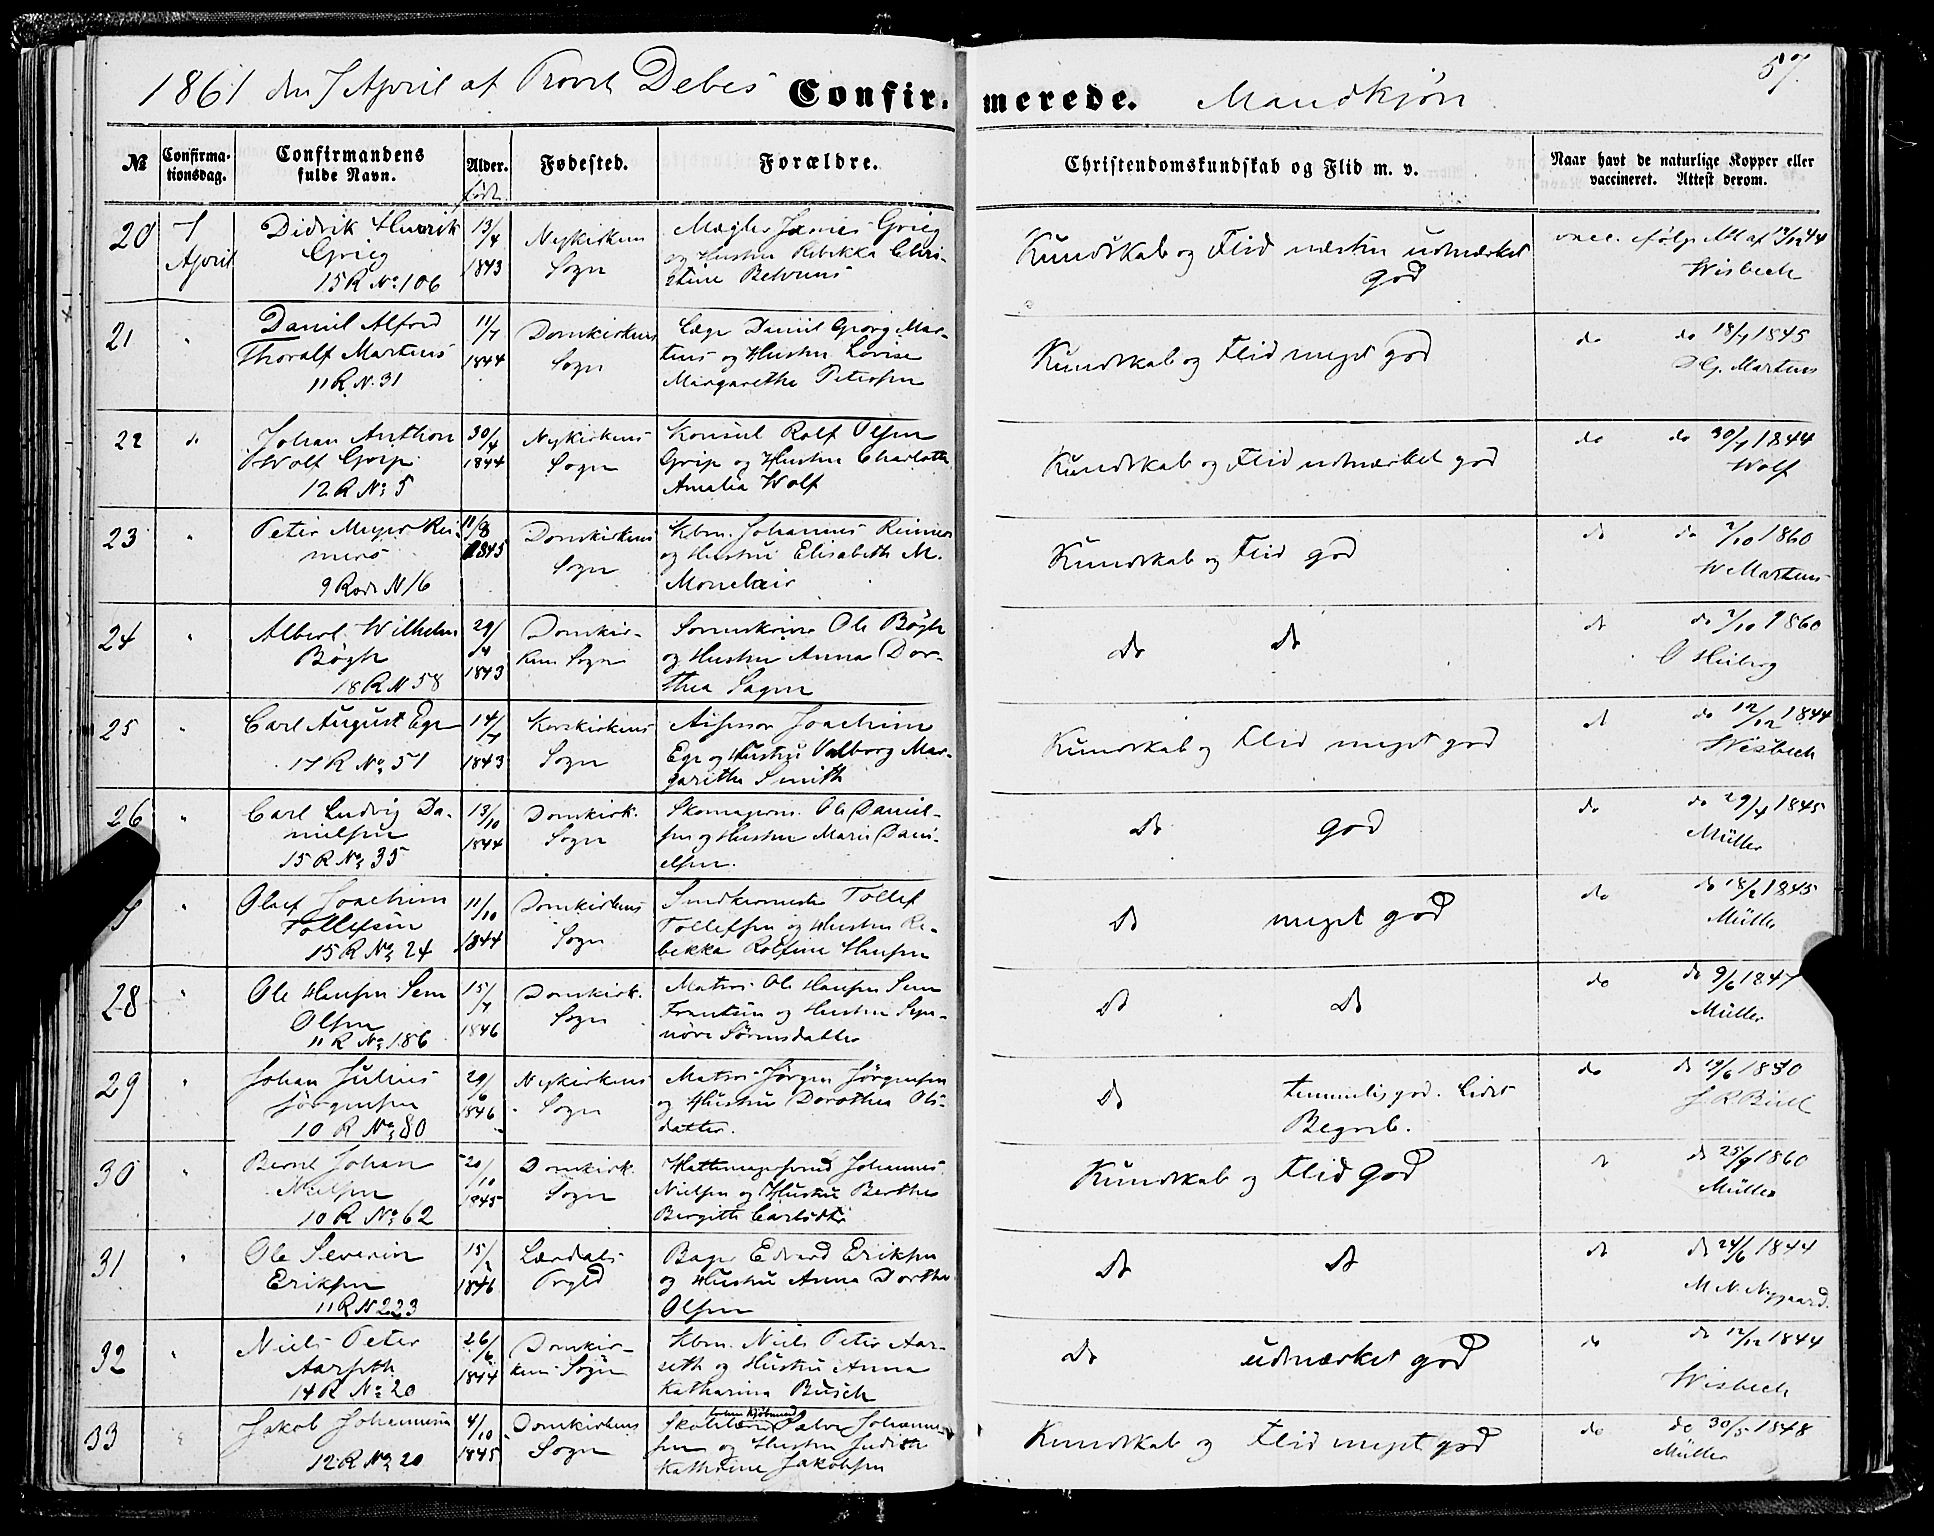 1861 den 7 April af Provst Debes Confirmerede. Mandkjøn 57.
№ Confirmationsdag. Confirmandens fulde Navn. Alder. født Fødested. Forældre. Christendomskundskab og Flid m. v. Naar havt de naturlige Kopper eller vaccineret. Attest derom.
20 7 April
Didrik Henrik
Grieg
15 R No 106
13/4 1843
Nykirkens
Sogn
Mægler James Grieg
og Hustru Rebekka Chri-
stine Behrens
Kundskab og Flid næsten udmærket
god
vacc. ifølge Att af 12/12 44
Wisbech
21 "
Daniel Alfred
Thoralf Martens
11 R N. 31
11/7 1844
Domkirkens
Sogn
Læge Daniel Georg Mar-
tens og Hustru Lovise
Margarethe Petersen
Kundskab og Flid meget god
do do 18/7 1845
DG. Martens
22 do
Johan Anthon
Wolf Grip
12 R No 5
30/4 1844
Nykirkens
Sogn
Konsul Rolf Olsen
Grip og Hustru Charlotte
Amalia Wolf
Kundskab og Flid udmærket god
do do 30/7 1844
Wolf
23 "
Peter Meyer Rei-
mers
9 Rode N 16
11/8 1845
Domkirkens
Sogn
Kbm. Johannes Reimers
og Hustru Elisabeth M.
Monclair
Kundskab og Flid god
do do 2/10 1860
W Martens
24 "
Albert Wilhelm
Bøgh
18 R N 58
29/4 1843
Domkir-
kens Sogn
Sorenskriver Ole Bøgh
og Hustru Anna Dor-
thea Sagen
do do
do do 2/10 1860
O Heiberg
25 "
Carl August Ege
17 R No 51
14/4 1843
Korskirkens
Sogn
Assessor Joachim
Ege og Hustru Valborg Mar-
garethe Smith
Kundskab og Flid meget god
do do 12/12 1844
Wisbech
26 "
Carl Ludvig Da-
nielsen
15 R No 35
13/10 1844
Domkirk.
Sogn
Skomagerm. Ole Daniel-
sen og Hustru Maria Dani-
elsen.
Do god
do do 29/4 1845
Müller
7 "
Olaf Joachim
Tollefsen
15 R No 24
11/10 1844
Domkirkens
Sogn
Snedkermester Tollef
Tollefsen og Hustru Re-
bekka Rolfine Hansen
Do meget god
do do 18/2 1845
Müller
28 "
Ole Hansen Sem
Olsen
11 R No 186
15/7 1846
Domkirk.
Sogn
Matros Ole Hansen Sem
og Hustru
Sørensdatter
Do Do
do do 9/6 1847
Müller
29 "
Johan Julius
Jørgensen
10 R No 80
29/6 1846
Nykirkens
Sogn
Matros Jørgen Jørgensen
og Hustru Dorothea Ols-
datter.
Do temmelig god. Lidet
Begreb.
do do 19/6 1850
30 "
Bernt Johan
Nielsen
10 R No 62
20/10 1845
Domkirk.
Sogn
Hattemagersvend Johannes
Nielsen og Hustru Berthe
Birgitte Carlsdtr
Kundskab og Flid god
do do 25/9 1860
Müller
31 "
Ole Severin
Eriksen
11 R N 223
15/2 1846
Lærdals
Prgld
Bager Edvard Eriksen
og Hustru Anna Dorthea
Olsen
Do Do
do do 24/6 1844
M N. Nygaard.
32 "
Niels Peter
Aarseth
14 R No 20
26/6 1844
Domkir-
kens Sogn
Kbm. Niels Peter Aar-
seth og Hustru Anna
Katharina Busch
Do udmærket god
do do 12/12 1844
Wisbech
33 "
Jakob Johannesen
12 R No 20
4/10 1845
Domkirkens
Sogn
Skolelærer Salve Johanne-
sen og Hustru Judithe
Kathrine Jakobsen
Kundskab og Flid meget god
do do 30/5 1848
Müller